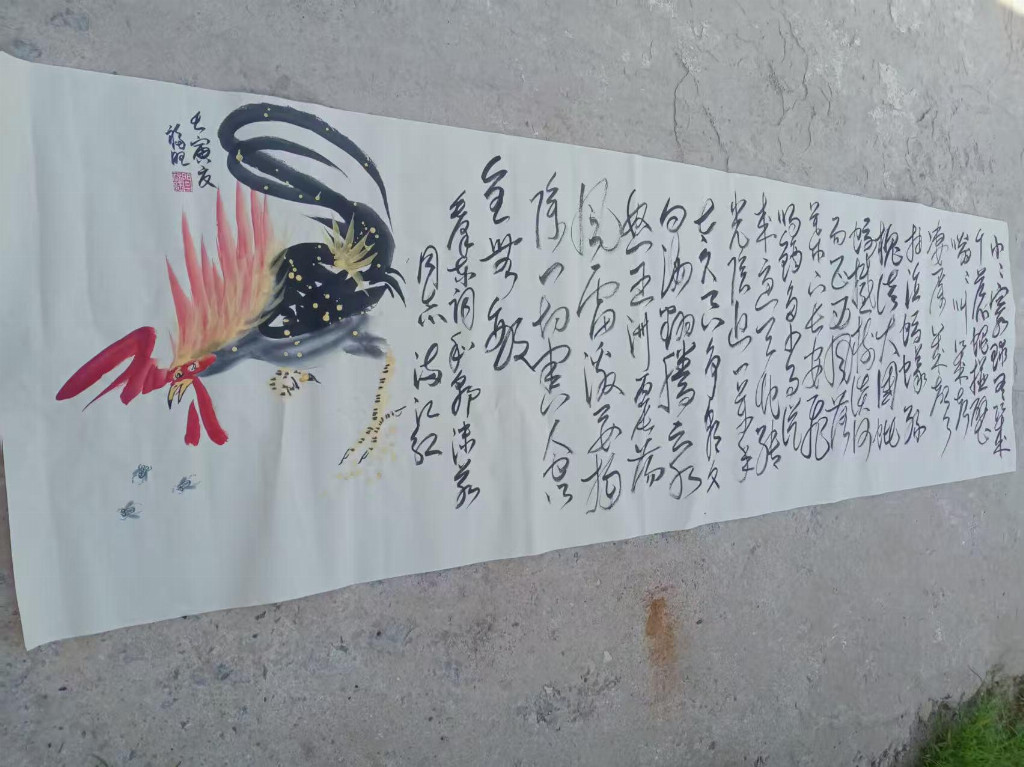 小小寰球有几
个苍蝇碰壁
嗡嗡叫几声
凄厉几声
抽泣蚂蚁缘
槐夸大国蚍
蜉撼树谈何
易正西风落
叶下长安飞
鸣镝多少事从
来急天地转
光阴迫一万年
太久只争朝夕
四海翻腾云水
怒五洲震荡
风雷激要扫
除一切害人虫
全無敌
毛泽东词和郭沫若
同志满江红
壬寅夏